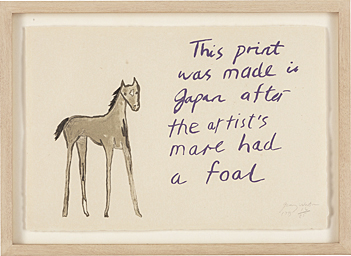 This print
was made in
Japan after
the artist's
mare had
a foal